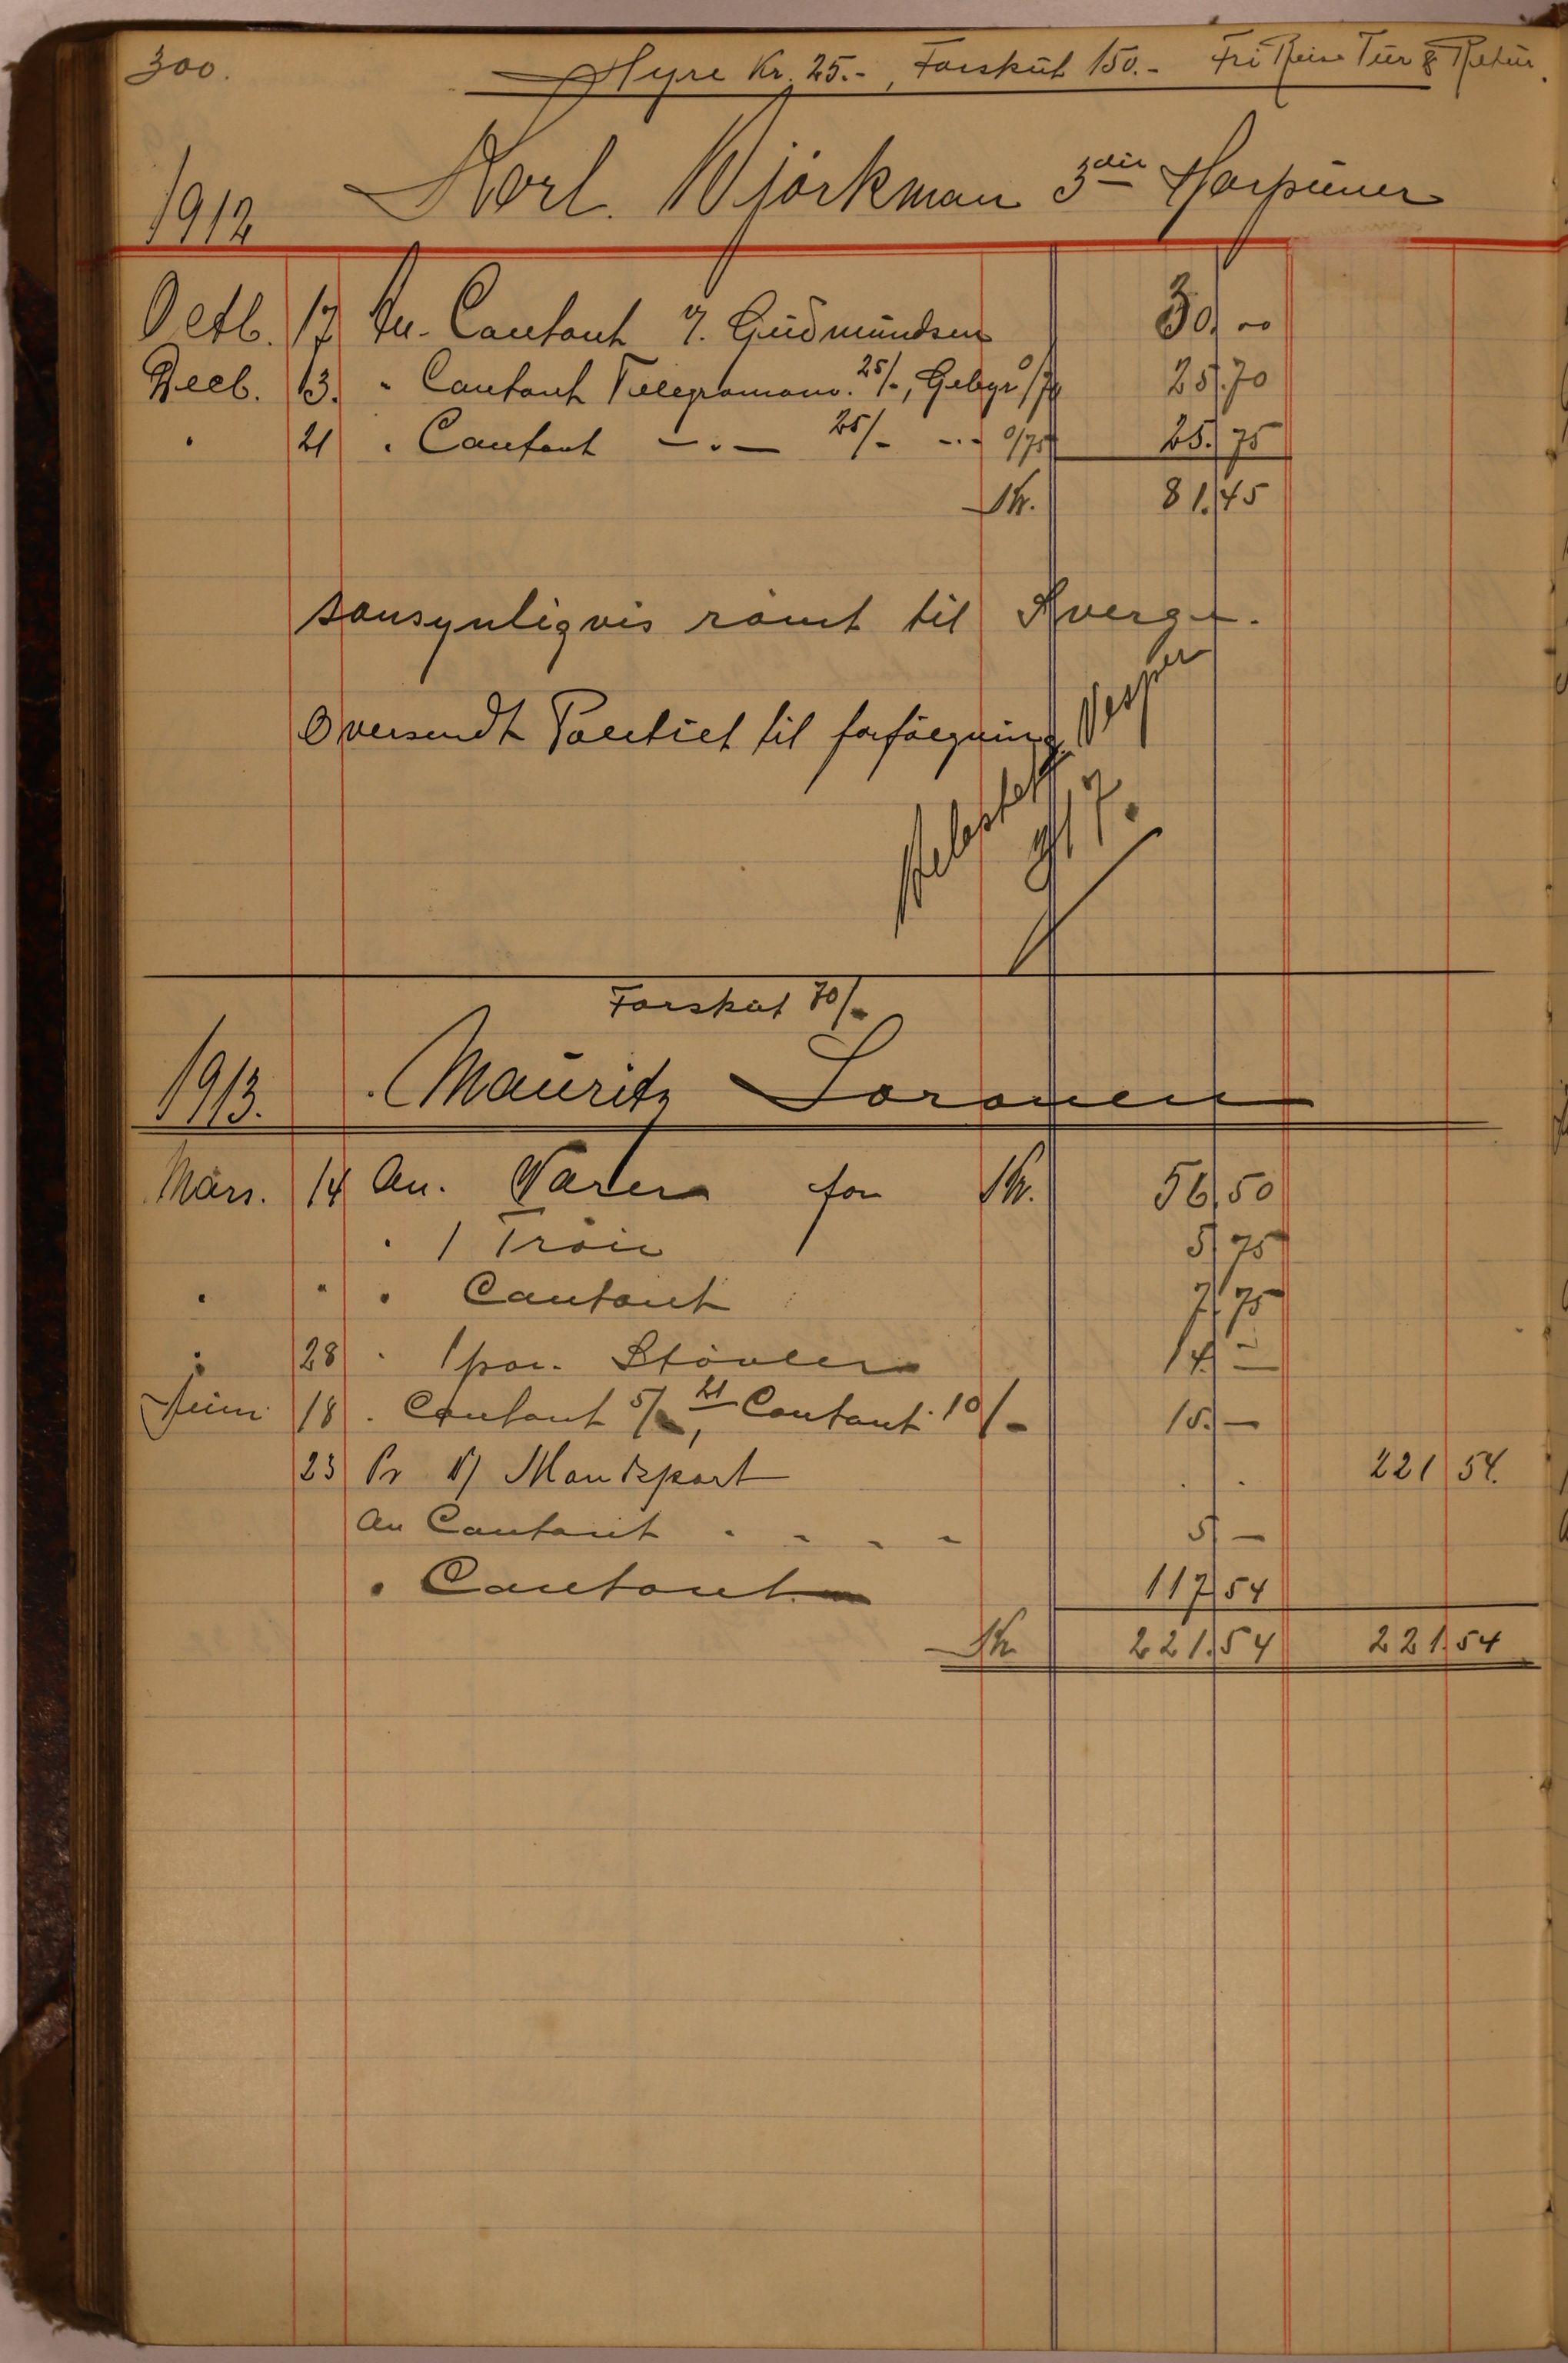 300.
Hyre Kr. 25.-, Forskût 150.- Fri Reise Tûr & Retûr.
1912 Karl. Björkman 3die Harpûner
Octb. 17 An. Contant Y. Gûdmûndsen 30.00
Decb. 13. " Contant Telegramanv. 25/-, Gebyr 0/70 25.70
" 21 " Contant -"- 25/- -"- 0/75 25.75
Kr. 81.45
sansynligvis römt til Sverge.
Oversendt Politiet til forfölgning
Forskût 70/-
1913. Mauritz Soronen
Mars. 14 An. Varer for Kr. 56,50
" 1 Tröie 5,75
" " " Contant 7,75
" 28 " 1 par. Stövler 14,-
Juni 18 " Contant 5/-, 21 Contant 10/- 15.-
23 Pr Mandspart 221,54.
An Contant 5,-
" Contant 117,54
Kr 221.54 221.54